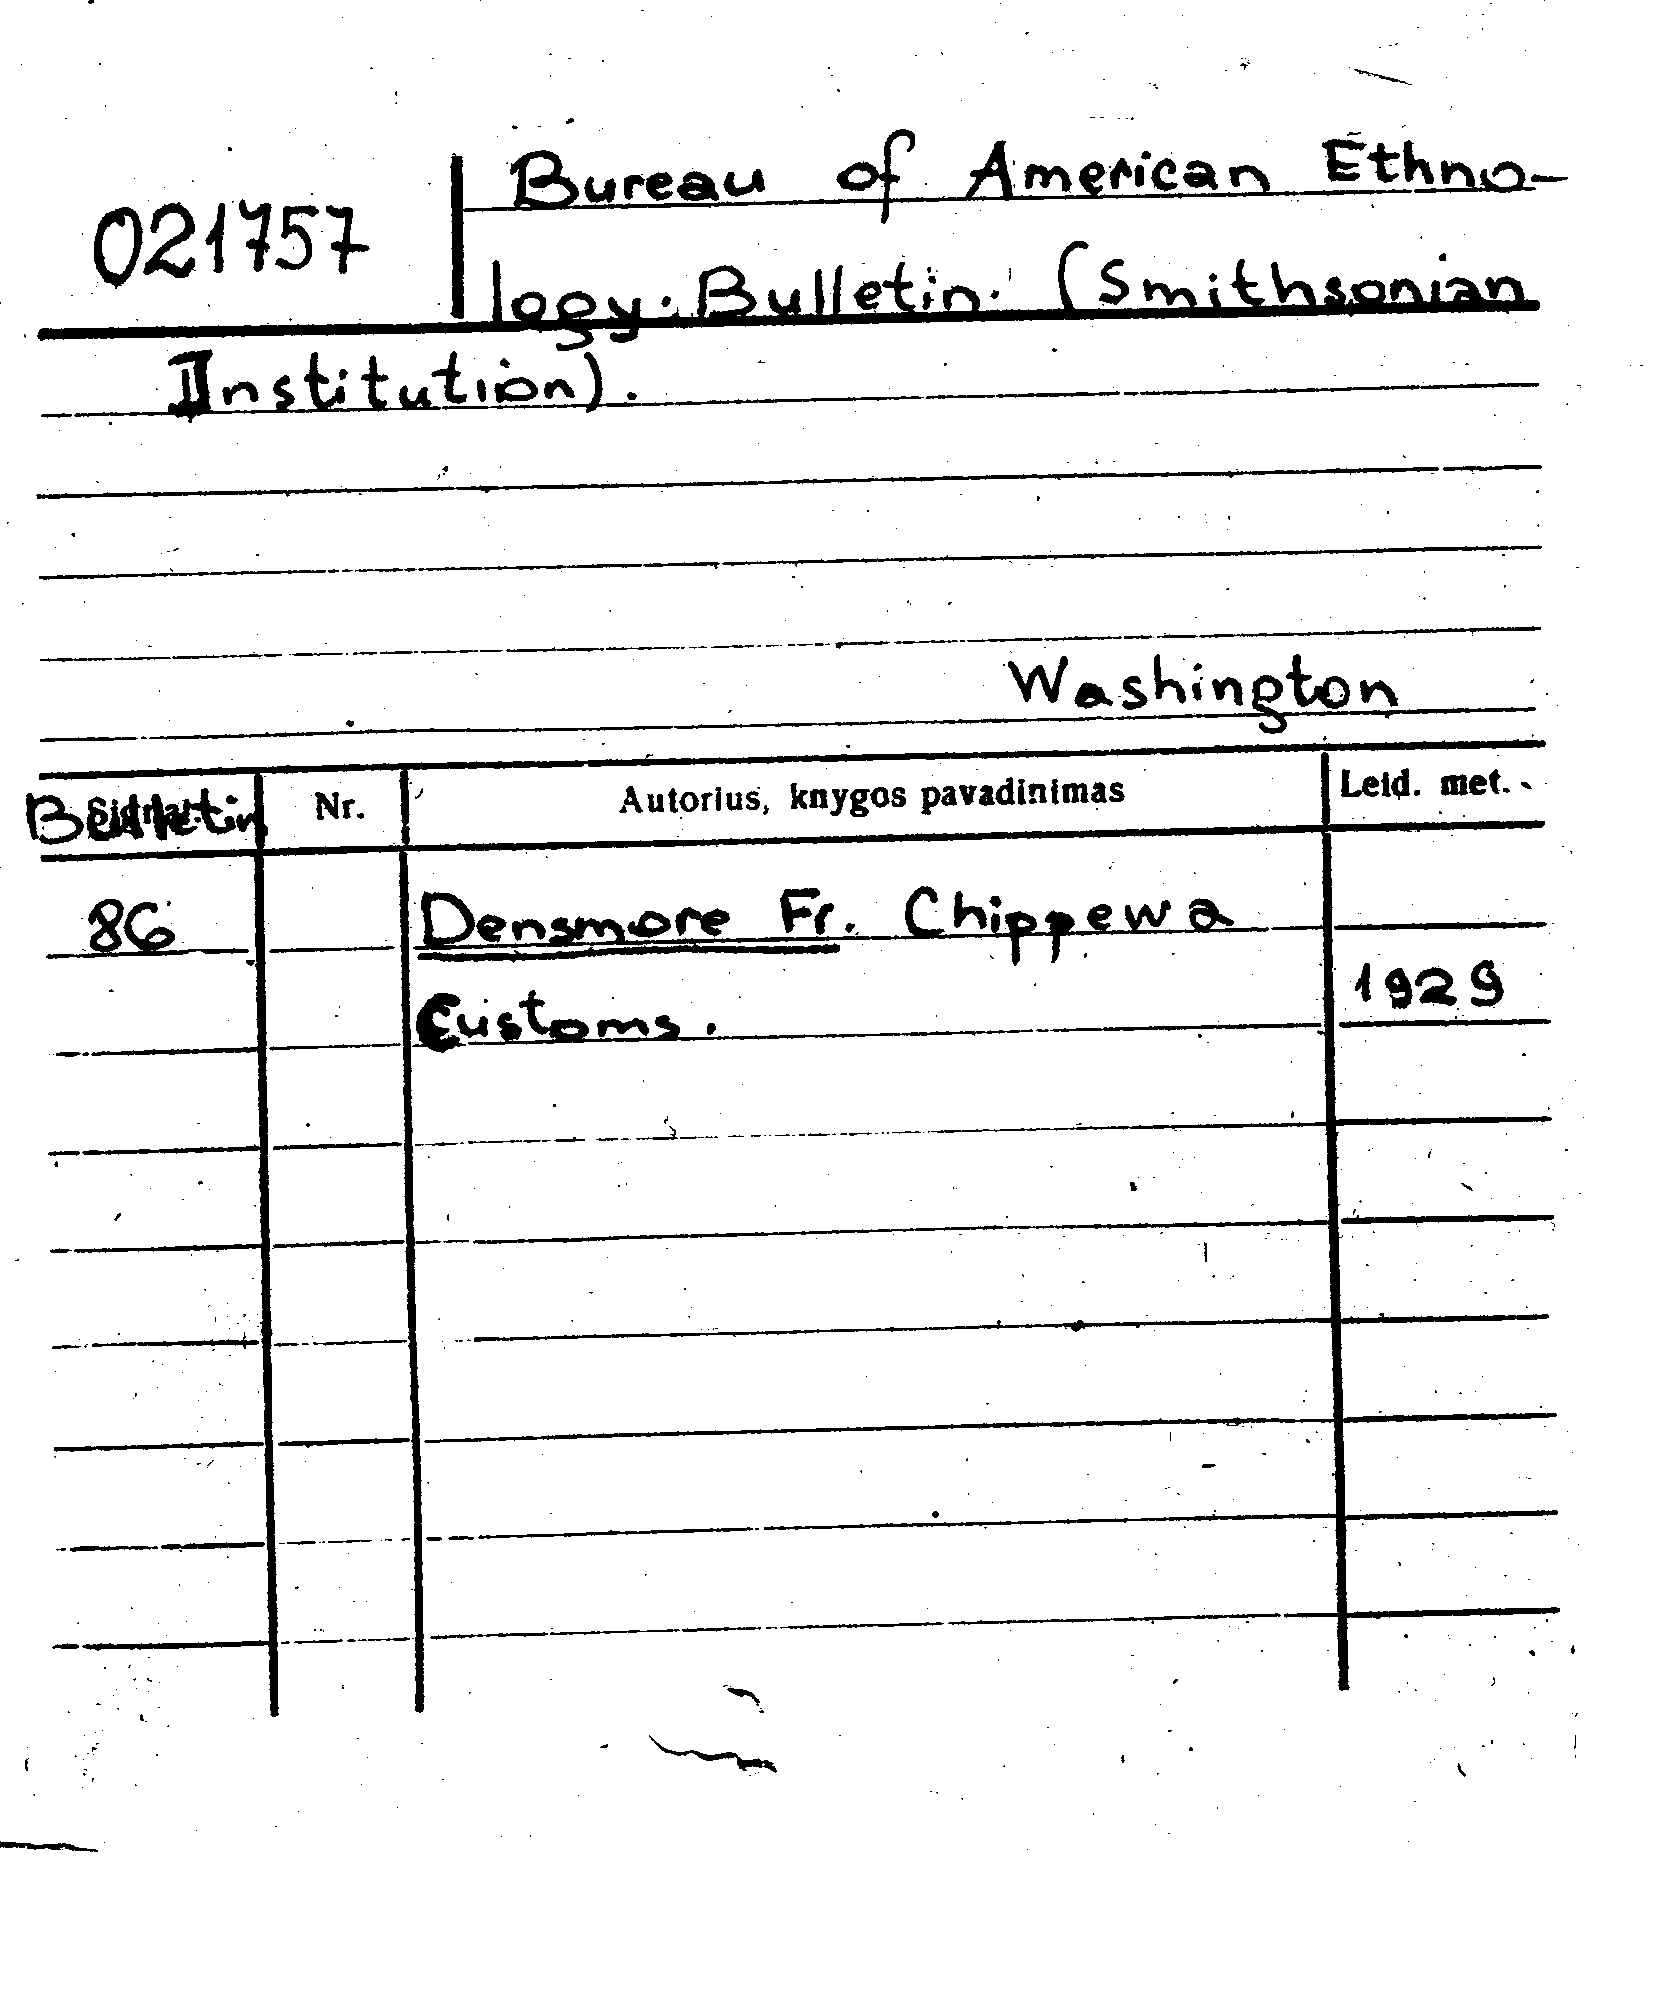 Bureau of American Ethno-
021757
logy. Bulletin. (Smithsonian
Institution).
Washington
Bulletin Nr. Autorius, knygos pavadinimas Leid. met.
86 Densmore Fr. Chippewa
Customs. 1929